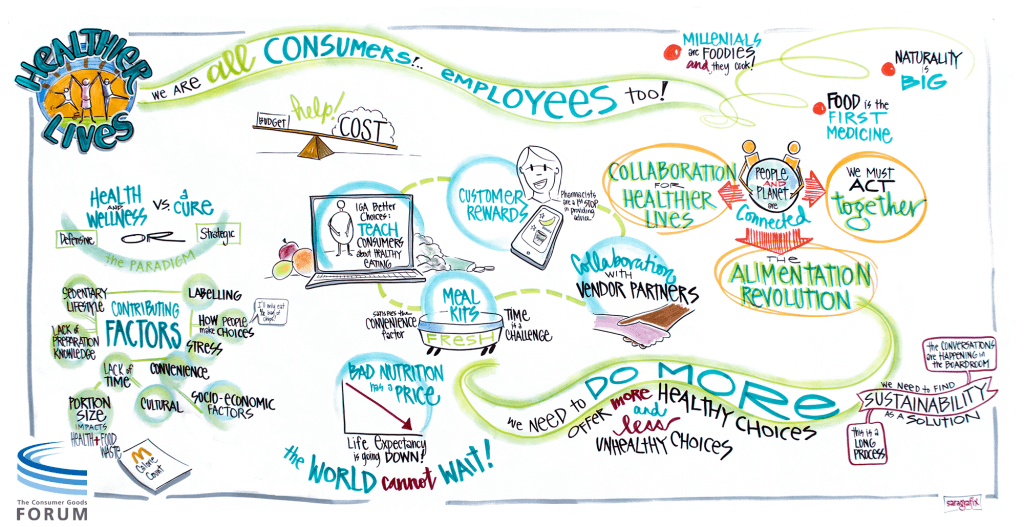 HEALTHIER
LIVES
WE ARE all CONSUMERS!.. EMPLOYEES TOO!
MILLENIALS
are FOODIES
and they cook!
NATURALITY
is
BIG
FOOD is the
FIRST
MEDICINE
help!
BUDGET
COST
HEALTH
AND
WELLNESS
VS.
a
CURE
Defensive
OR
Strategic
the PARADIGM
IGA Better
Choices:
TEACH
CONSUMERS
about HEALTHY
EATING
CUSTOMER
REWARDS
Pharmacists
are a 1st STOP
in providing
advice.
COLLABORATION
FOR
HEALTHIER
LIVES
PEOPLE
AND
PLANET
are
Connected
WE MUST
ACT
together
THE
ALIMENTATION
REVOLUTION
Collaboration
WITH
VENDOR PARTNERS
MEAL
KITS
FRESH
satisfies the
CONVENIENCE
factor
TIME
is a
CHALLENGE
CONTRIBUTING
FACTORS
SEDENTARY
LIFESTYLE
LACK of
PREPARATION
KNOWLEDGE
LACK of
TIME
PORTION
SIZE
IMPACTS
HEALTH + FOOD
WASTE
CULTURAL
CONVENIENCE
SOCIO-ECONOMIC
FACTORS
STRESS
HOW PEOPLE
make CHOICES
LABELLING
I'll only eat
chips!
M
Calorie
Count
BAD NUTRITION
has a
PRICE
Life Expectancy
is going DOWN!
the WORLD cannot WAIT!
WE NEED to DO MORE
OFFER more HEALTHY CHOICES
and
less
UNHEALTHY CHOICES
the CONVERSATIONS
are HAPPENING in
the BOARDROOM
WE NEED to FIND
SUSTAINABILITY
AS a SOLUTION
this is a
LONG
PROCESS
The Consumer Goods
FORUM
saragrafix